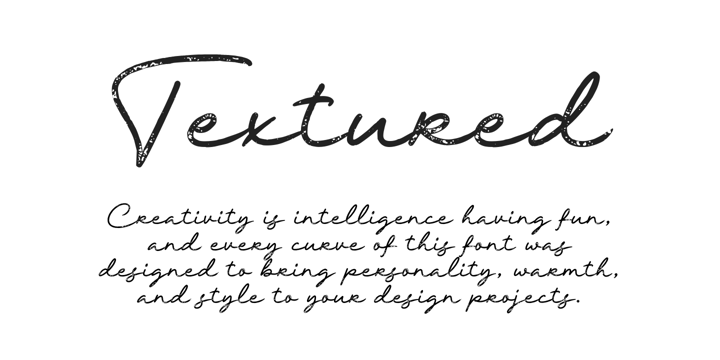 Textured
Creativity is intelligence having fun,
and every curve of this font was
designed to bring personality, warmth,
and style to your design projects.